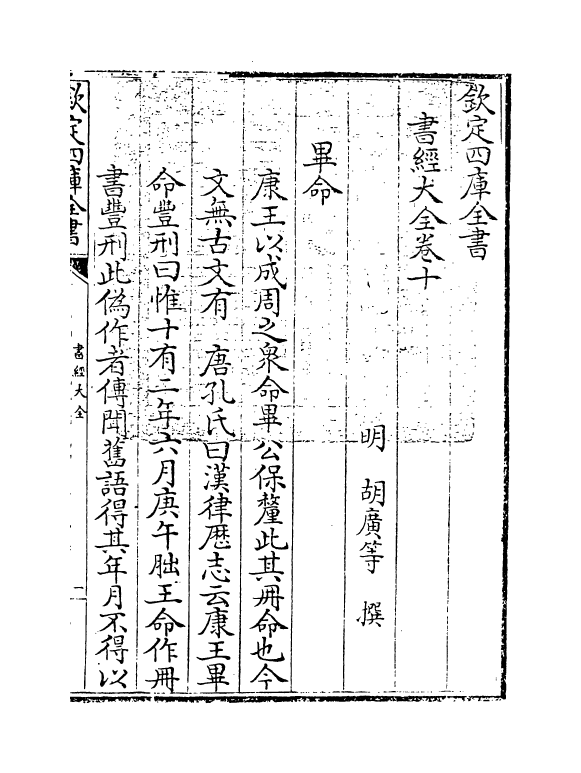 欽定四庫全書
書經大全卷十
明 胡廣等 撰
畢命
康王以成周之衆命畢公保釐此其冊命也今
文無古文有 唐孔氏曰漢律歷志云康王畢
命豐刑曰惟十有二年六月庚午朏王命作冊
書豐刑此偽作者傳聞舊語得其年月不得以
欽定四庫全書
書經大全